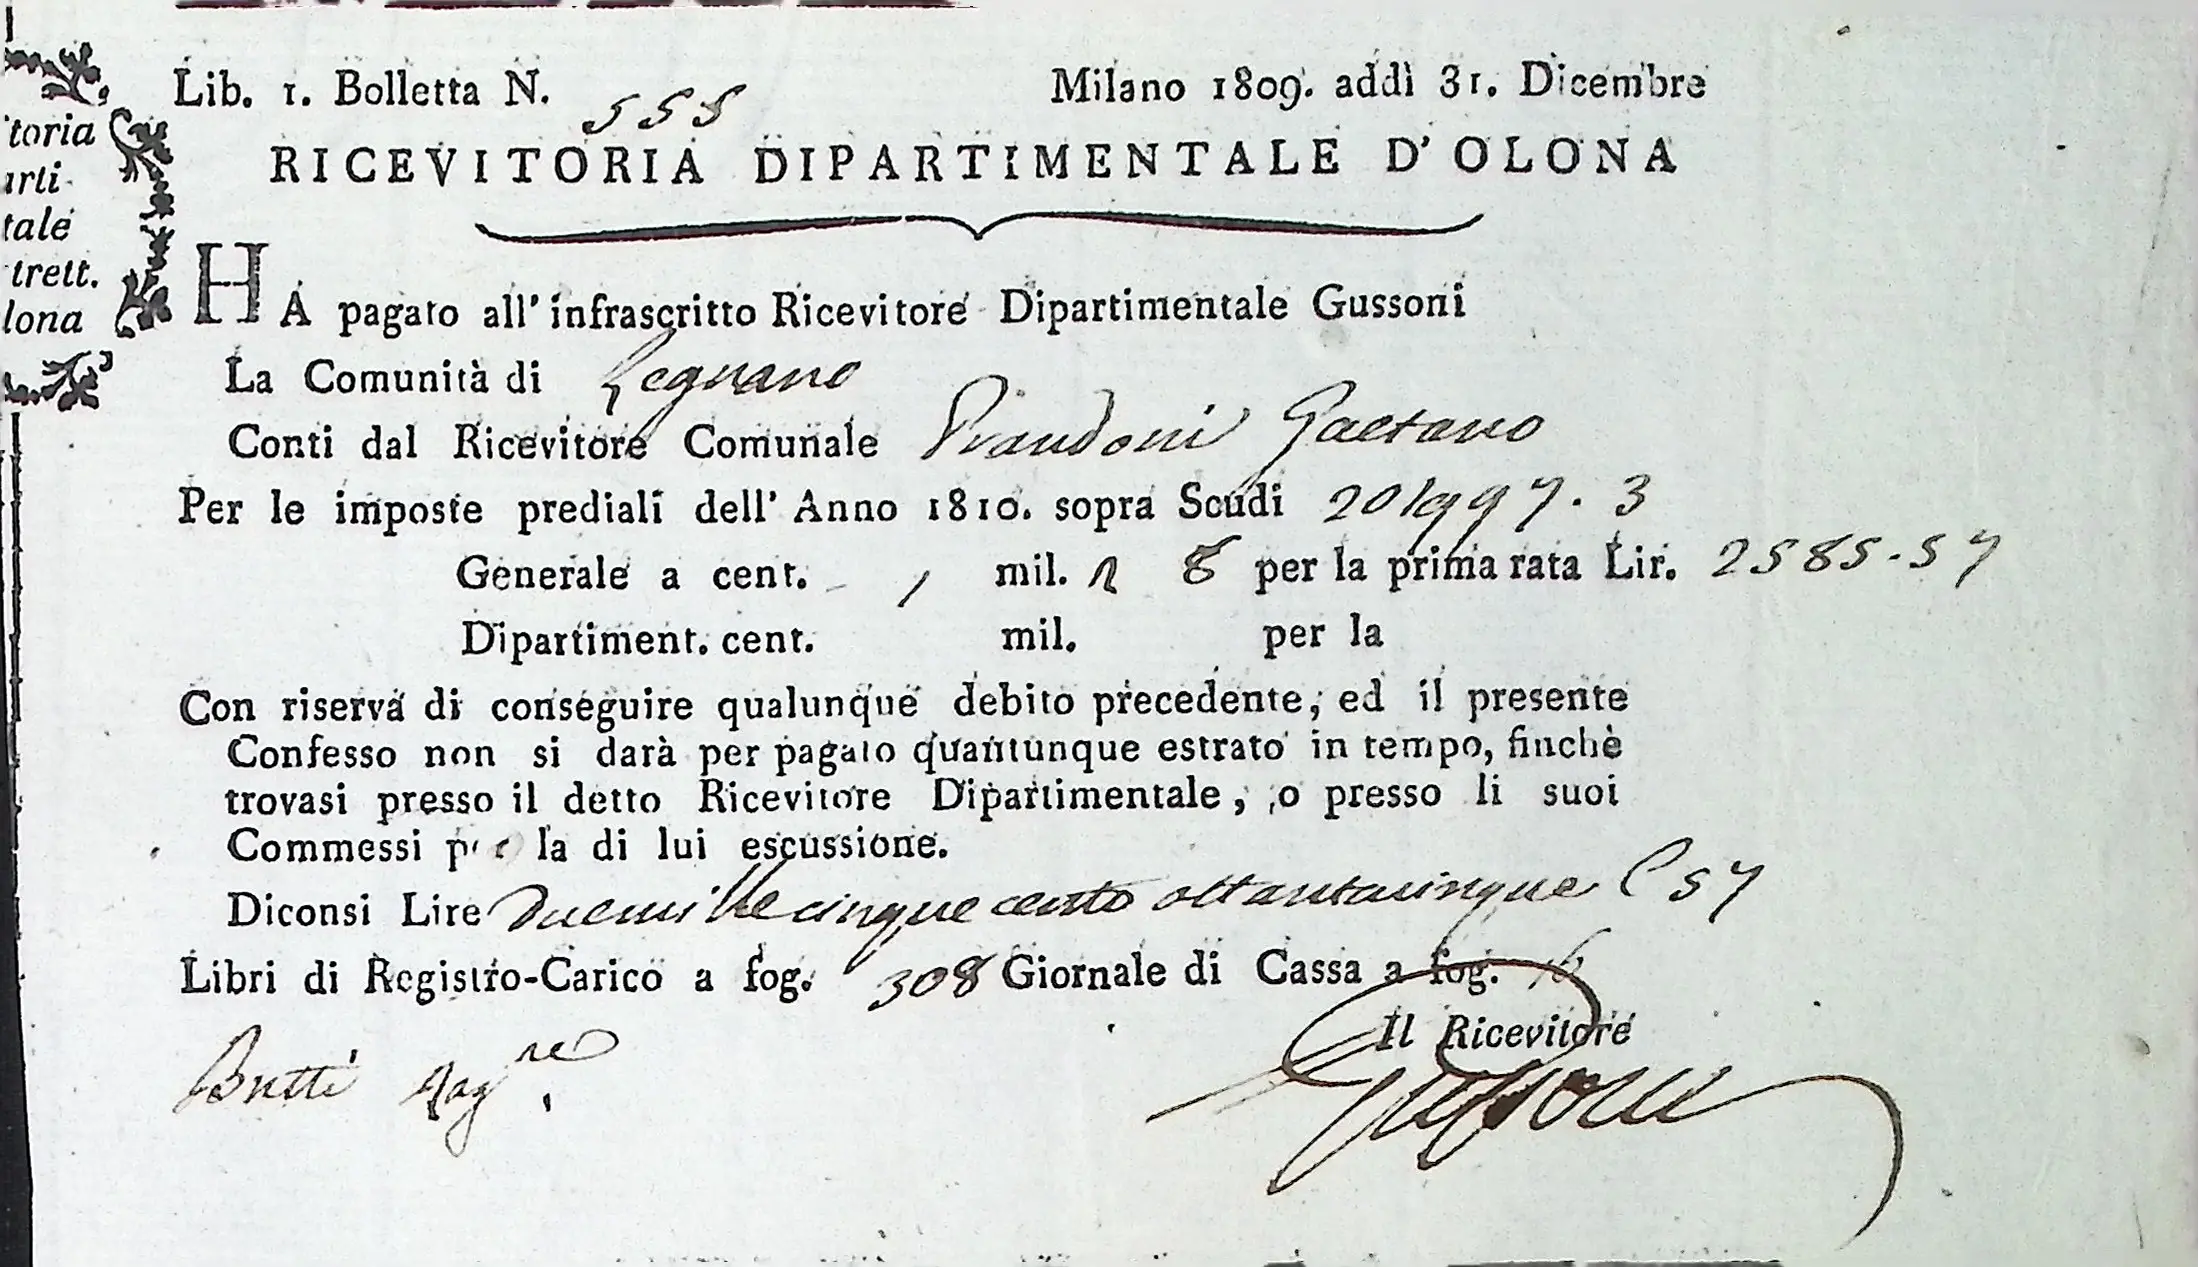 Lib. 1. Bolletta N. 555 Milano 1809. addì 31. Dicembre
RICEVITORIA DIPARTIMENTALE D'OLONA
toria
arti
tale
trett.
lona
HA pagato all'infrascritto Ricevitore Dipartimentale Gussoni
La Comunità di Legnano
Conti dal Ricevitore Comunale Prandoni Gaetano
Per le imposte prediali dell'Anno 1810. sopra Scudi 3
Generale a cent. mil. 8 per la prima rata Lir. 2585-57
Dipartiment. cent. mil. per la
Con riserva di conseguire qualunque debito precedente, ed il presente
Confesso non si darà per pagato quantunque estrato in tempo, finchè
trovasi presso il detto Ricevitore Dipartimentale, o presso li suoi
Commessi per la di lui escussione.
Diconsi Lire Duemille cinque cento ottantacinque C 57
Libri di Registro-Carico a fog. 308 Giornale di Cassa a fog.
Il Ricevitore
Butti Rag.re
Gussoni